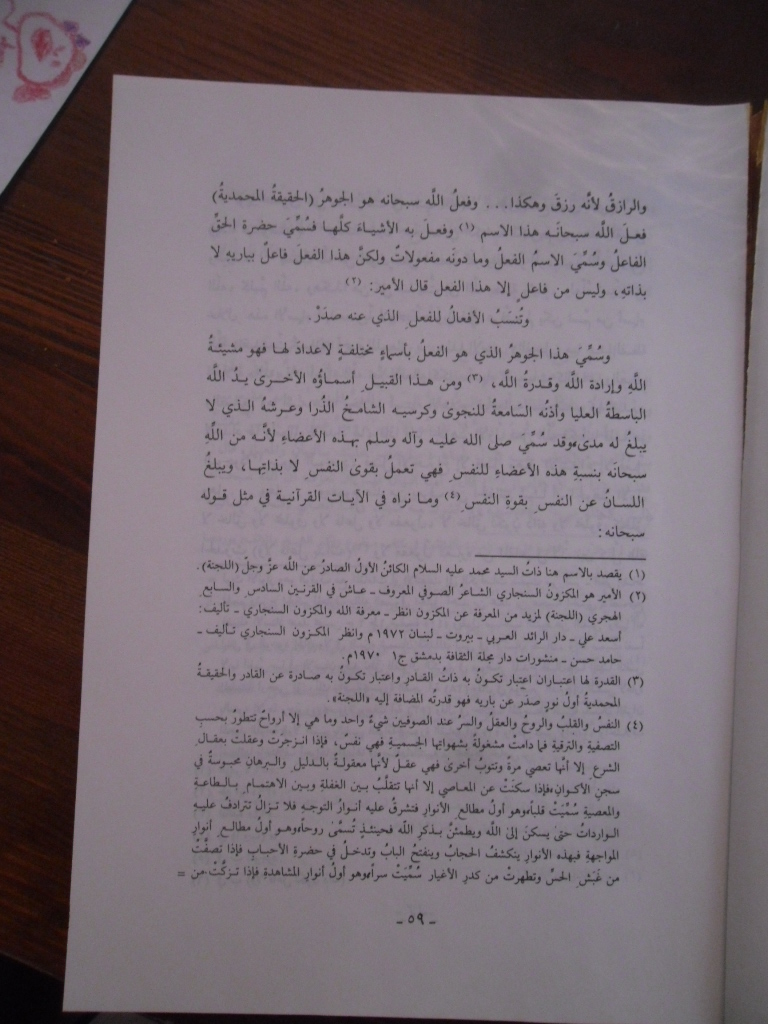 والرازقُ لأنَّه رزقَ وهكذا... وفعلُ اللَّه سبحانه هو الجوهرُ (الحقيقةُ المحمديةُ)
فعـلَ اللَّه سبحانَـه هذا الاسم (١) وفعـلَ به الأشياءَ كلَّهـا فسُمِّيَ حضرة الحقِّ
الفاعلُ وسُمِّيَ الاسمُ الفعلُ وما دونَه مفعولاتٌ ولكنَّ هذا الفعلَ فاعلٌ بباريهِ لا
بذاتهِ، وليس من فاعلٍ إلا هذا الفعل قال الأمير: (٢)
وتُنسَبُ الأفعالُ للفعلِ الذي عنه صدَرْ.
وسُمِّيَ هذا الجوهرُ الذي هو الفعلُ بأسماءٍ مختلفـةٍ لاعدادَ لهـا فهو مشيئـةُ
اللَّهِ وإرادة اللَّه وقـدرةُ اللَّه، (٣) ومن هـذا القبيلِ أسمـاؤُه الأخـرىٰ يـدُ اللَّه
الباسطةُ العليا وأذنُه السَّامعةُ للنجوىٰ وكرسيـه الشامـخُ الذُرا وعـرشهُ الـذي لا
يبلغُ له مدىٰ،وقد سُمِّيَ صلى الله عليـه وآله وسلم بهـذه الأعضـاءِ لأنَّـه من اللَّهِ
سبحانَه بنسبةِ هذه الأعضاءِ للنفسِ فهي تعملُ بقوىٰ النفسِ لا بذاتِهـا، ويبلغُ
اللسـانُ عن النفسِ بقوةِ النفس (٤) ومـا نراه في الآيـات القرآنيـة في مثل قـوله
سبحانه:
(١) يقصد بالاسم هنا ذاتُ السيد محمد عليه السلام الكائنُ الأولُ الصادرُ عن اللَّه عزَّ وجلَّ (اللجنة).
(٢) الأمير هو المكزونُ السنجاري الشاعرُ الصـوفي المعروف ـ عـاش في القرنـين السادسِ والسـابعِ
الهجري (اللجنة) لمزيد من المعرفة عن المكزون انظر ـ معرفة الله والمكزون السنجاري ـ تأليف:
أسعد علي ـ دار الرائد العـربي ـ بيروت ـ لبنـان ١٩٧٢م وانظر المكـزون السنجاري تـأليف ـ
حامد حسن ـ منشورات دار مجلة الثقافة بدمشق ج١ ١٩٧٠م.
(٣) القدرة لها اعتبـاران اعتبار تكـونُ به ذاتُ القـادرِ واعتبار تكـونُ به صـادرة عن القادر والحقيقـةُ
المحمديةُ أولُ نورٍ صدَر عن باريه فهو قدرتُه المضافة إليه «اللجنة».
(٤) النفسُ والقلبُ والروحُ والعقلُ والسرُّ عند الصوفيين شيءٌ واحد وما هي إلا أرواحٌ تتطورُ بحسبِ
التصفيةِ والترقيةِ فما دامتْ مشغولةً بشهواتِها الجسميـةِ فهي نفسٌ، فإذا انـزجرَتْ وعقلتْ بعقـالِ
الشرعِ إلا أنَّها تعصي مرةً وتتوبُ أخرىٰ فهي عقـلٌ لأنَّها معقولـةٌ بالـدليلِ والـبرهانِ محبوسـةٌ في
سجنِ الأكـوانِ،فإذا سكنَتْ عن المعـاصي إلا أنها تتقلَّبُ بـين الغفلةِ وبـين الاهتمـامِ بـالطاعـةِ
والمعصيةِ سُمِّيَتْ قلباً،وهو أولُ مطالعِ الأنوارِ فتشرقُ عليه أنـوارُ التوجـهِ فلا تـزالُ تترادفُ عليـهِ
الـوارداتُ حتىٰ يسكنَ إلىٰ اللَّه ويطمئنَّ بـذكرِ اللَّه فحينئـذٍ تُسمَّىٰ روحاً،وهـو أولُ مطالـعِ أنوارِ
المواجهةِ فبهذه الأنوارِ ينكشفُ الحجابُ وينفتحُ البابُ وتدخـلُ في حضرةِ الأحبـابِ فإذا تصفَّتْ
من غَبَشِ الحسِّ وتطهرتْ من كدرِ الأغيارِ سُمِّيَتْ سراً،وهو أولُ أنوارِ المشاهدةِ فإذا تـزكَّتْ من =
ـ ٥٩ ـ